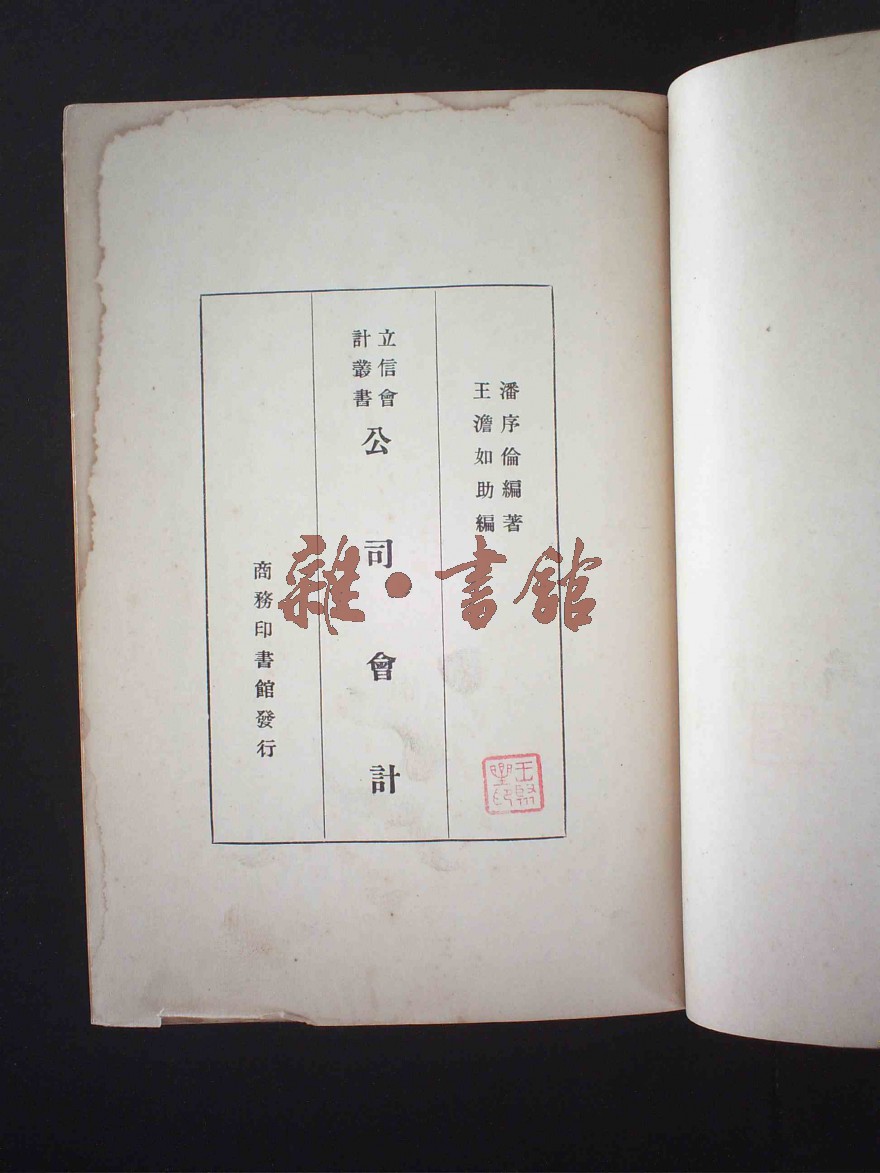 潘序倫編著
王澹如助編
立信會
計叢書
公司會計
商務印書館發行
雜·書館